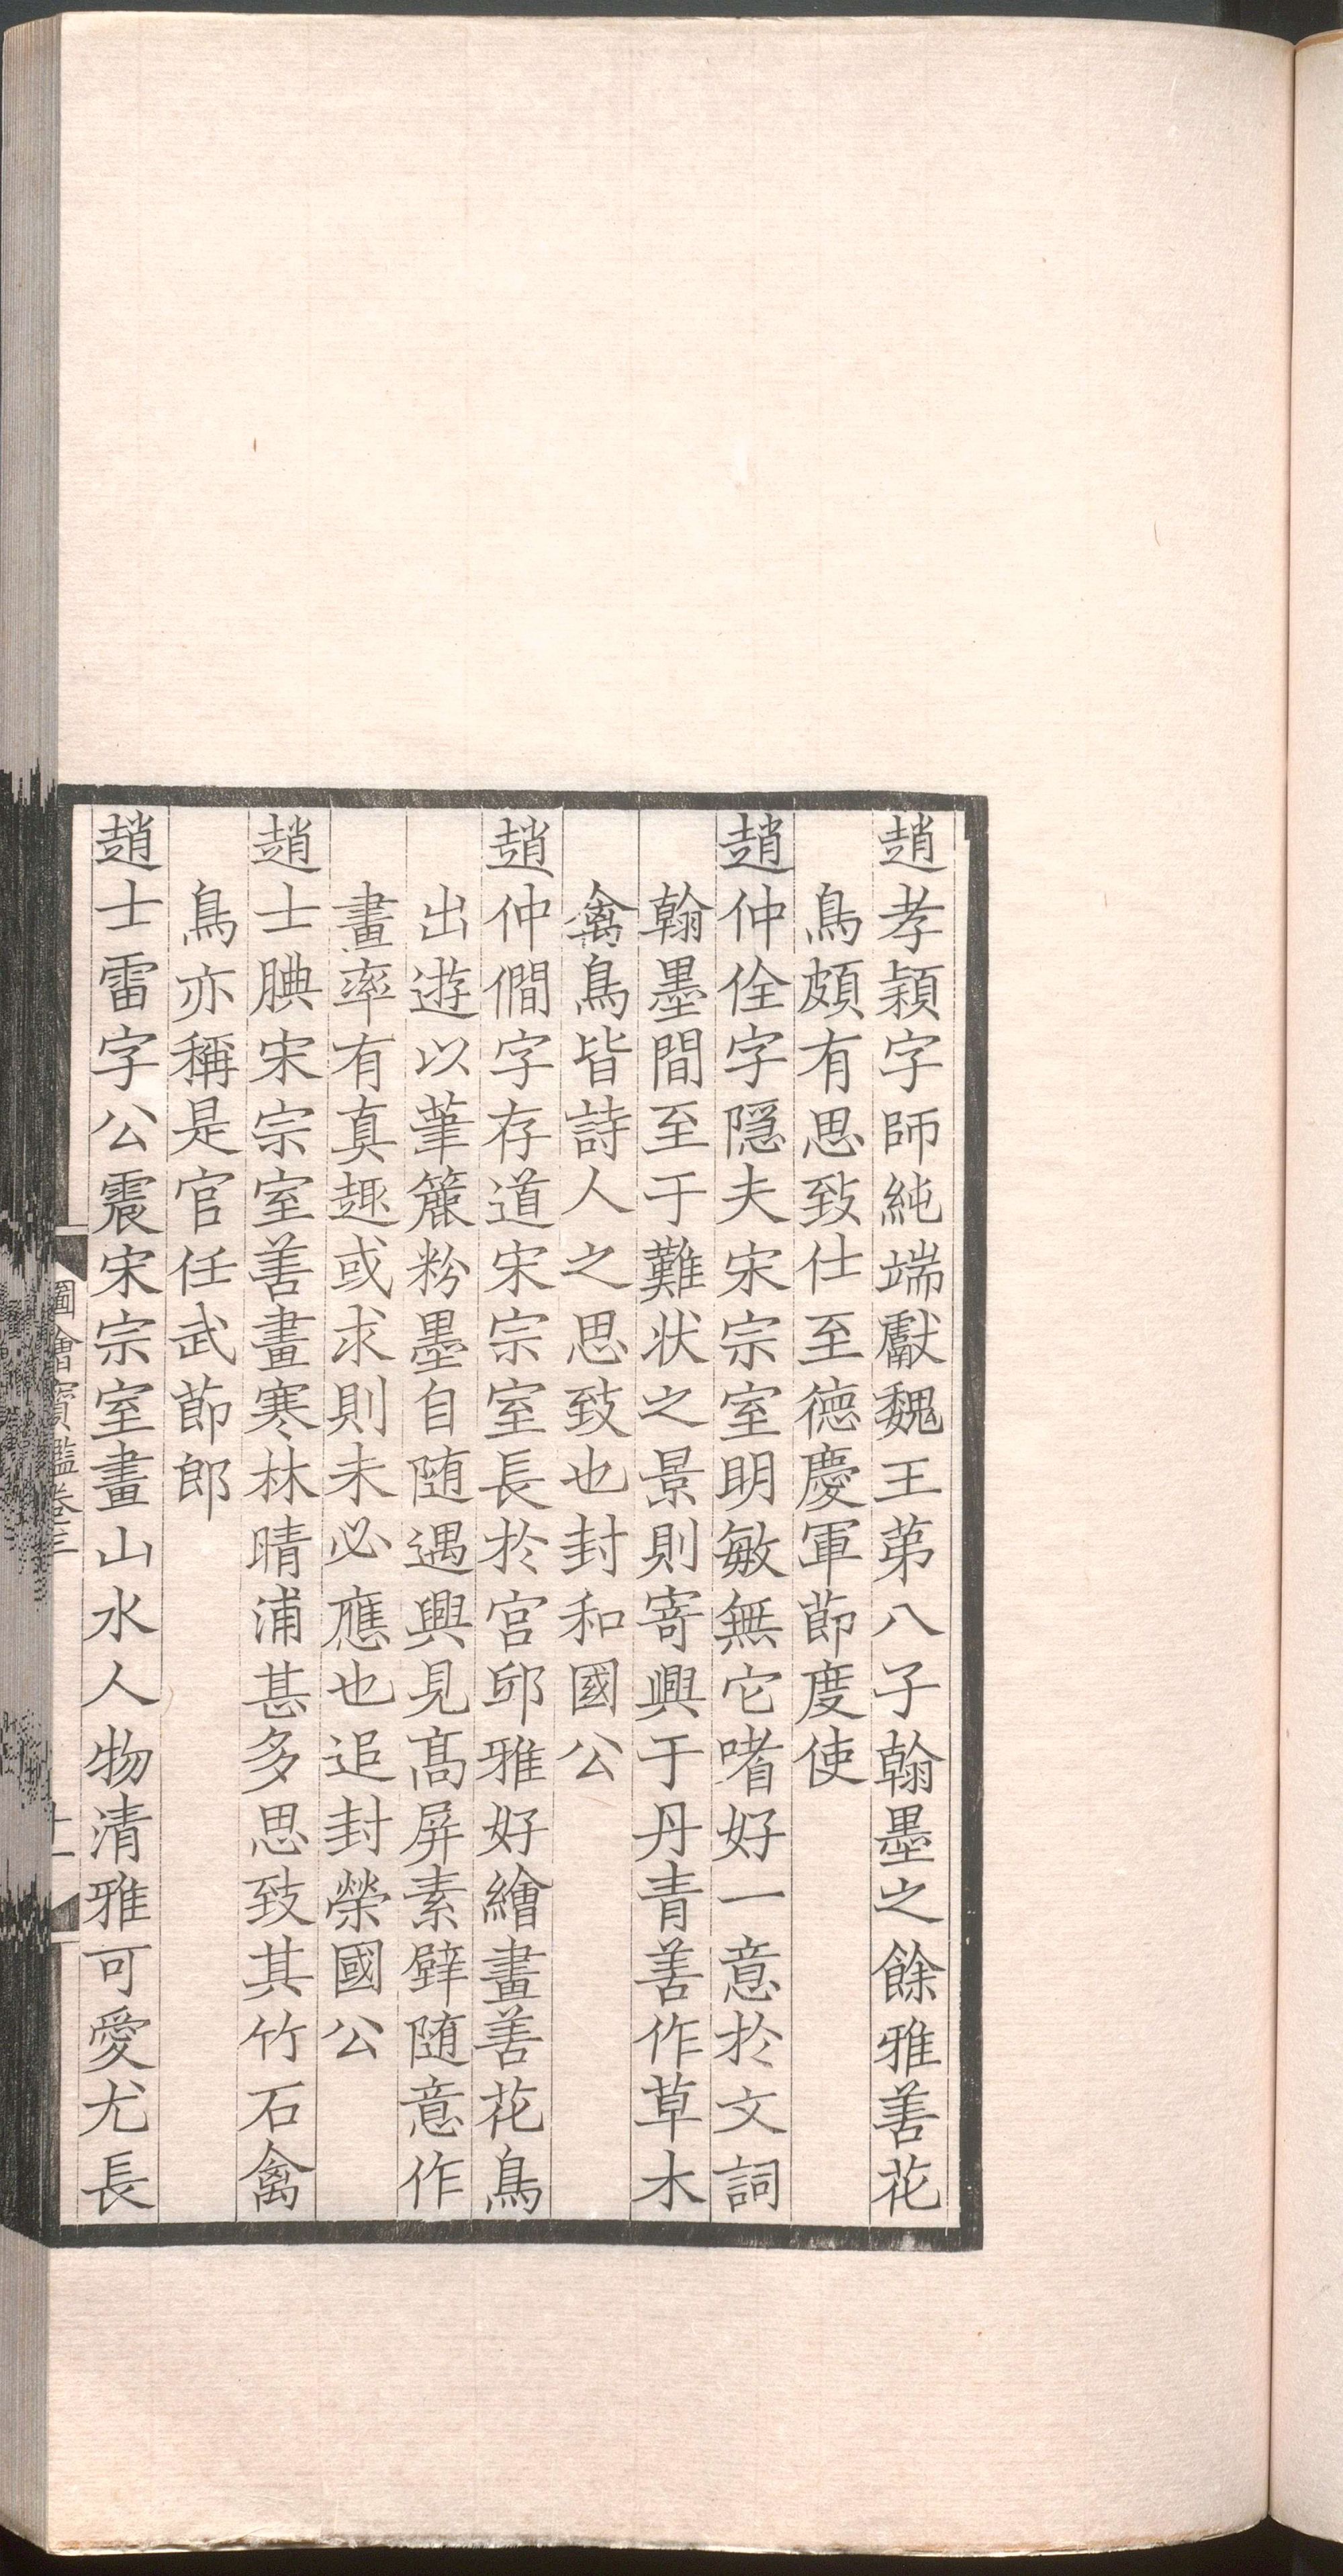 趙孝頴字師純端獻魏王苐八子翰墨之餘雅善花
鳥頗有思致仕至徳慶軍節度使
趙仲佺字隠夫宋宗室明敏無它嗜好一意於文詞
翰墨間至于難状之景則寄興于丹青善作草木
禽鳥皆詩人之思致也封和國公
趙仲僩字存道宋宗室長於宫邸雅好繪畫善花鳥
出遊以筆簏粉墨自随遇興見髙屏素壁随意作
畫率有真趣或求則未必應也追封榮國公
趙士腆宋宗室善畫寒林晴浦甚多思致其竹石禽
鳥亦稱是官任武節郎
趙士雷字公震宋宗室畫山水人物清雅可愛尤長
圖繪寳鑑卷三